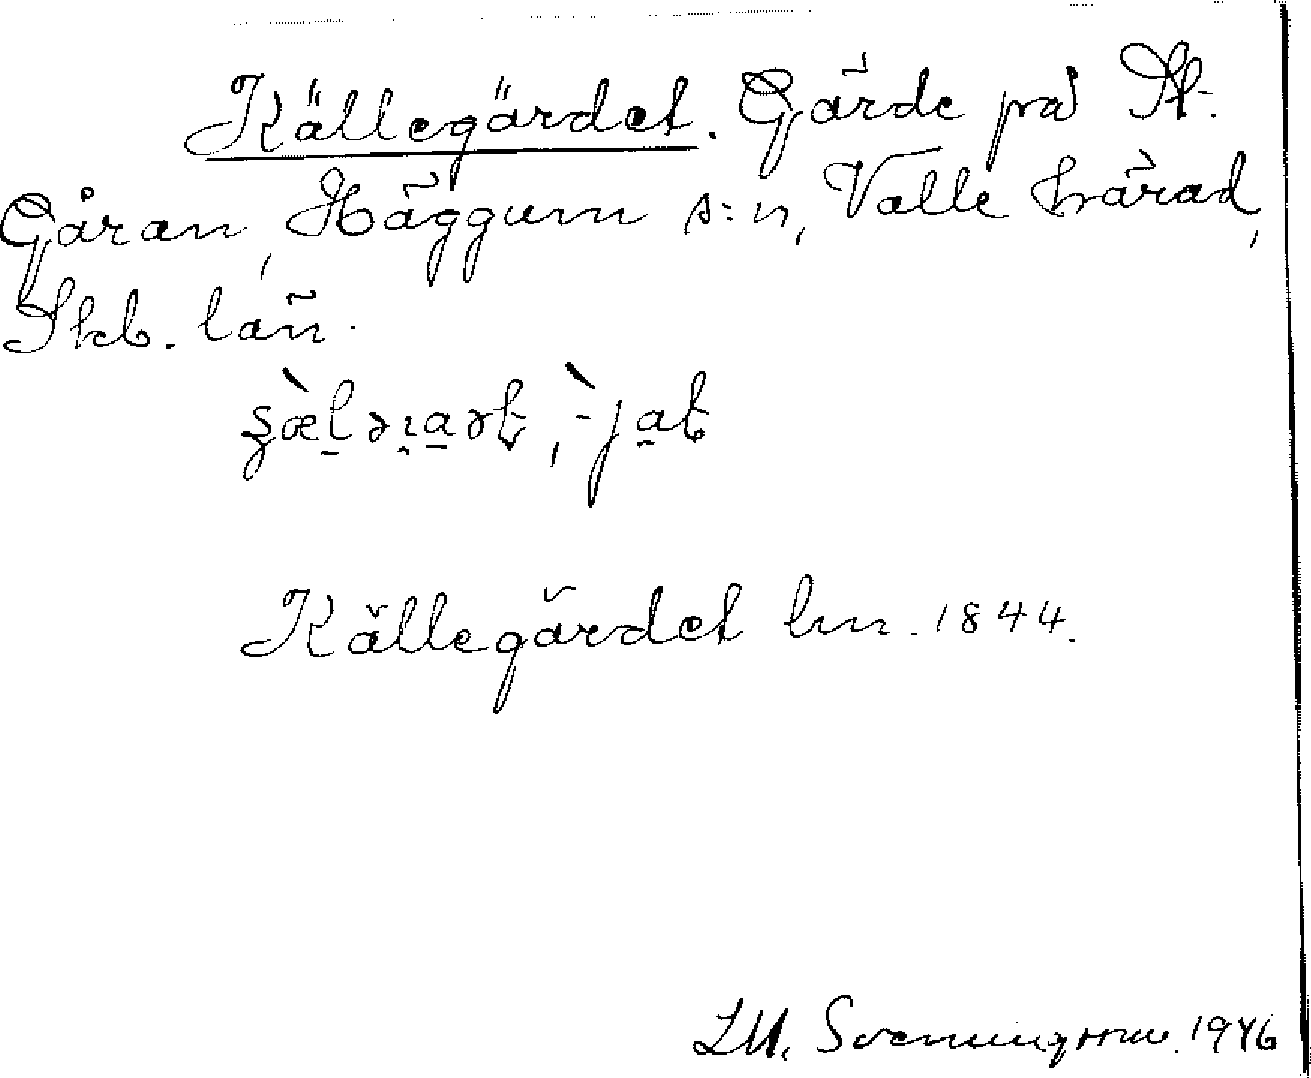 Källegärdet. Gärde på St.
Gåran, Häggum s:n, Valle härad,
Skb. län.
Källegärdet lm. 1844.
LM. Svenningsson. 1946